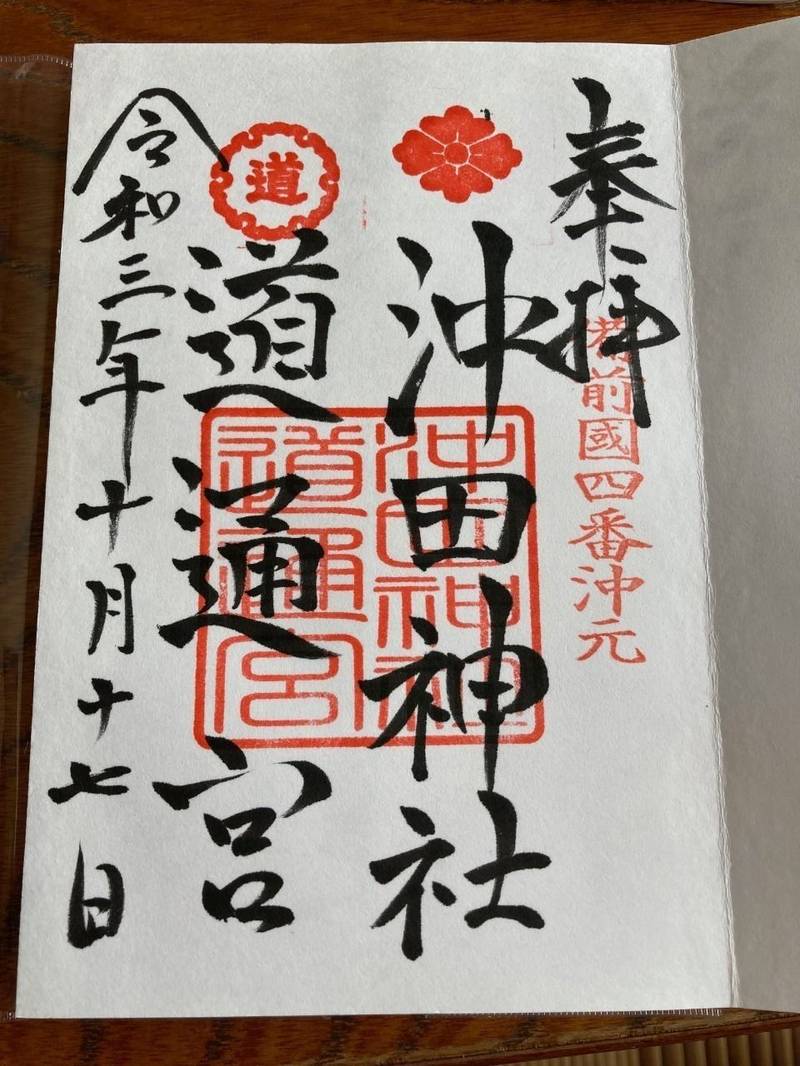 奉拝
備前國四番沖元
沖田神社
道
道通宮
沖田神社
道通宮
令和三年十月十七日